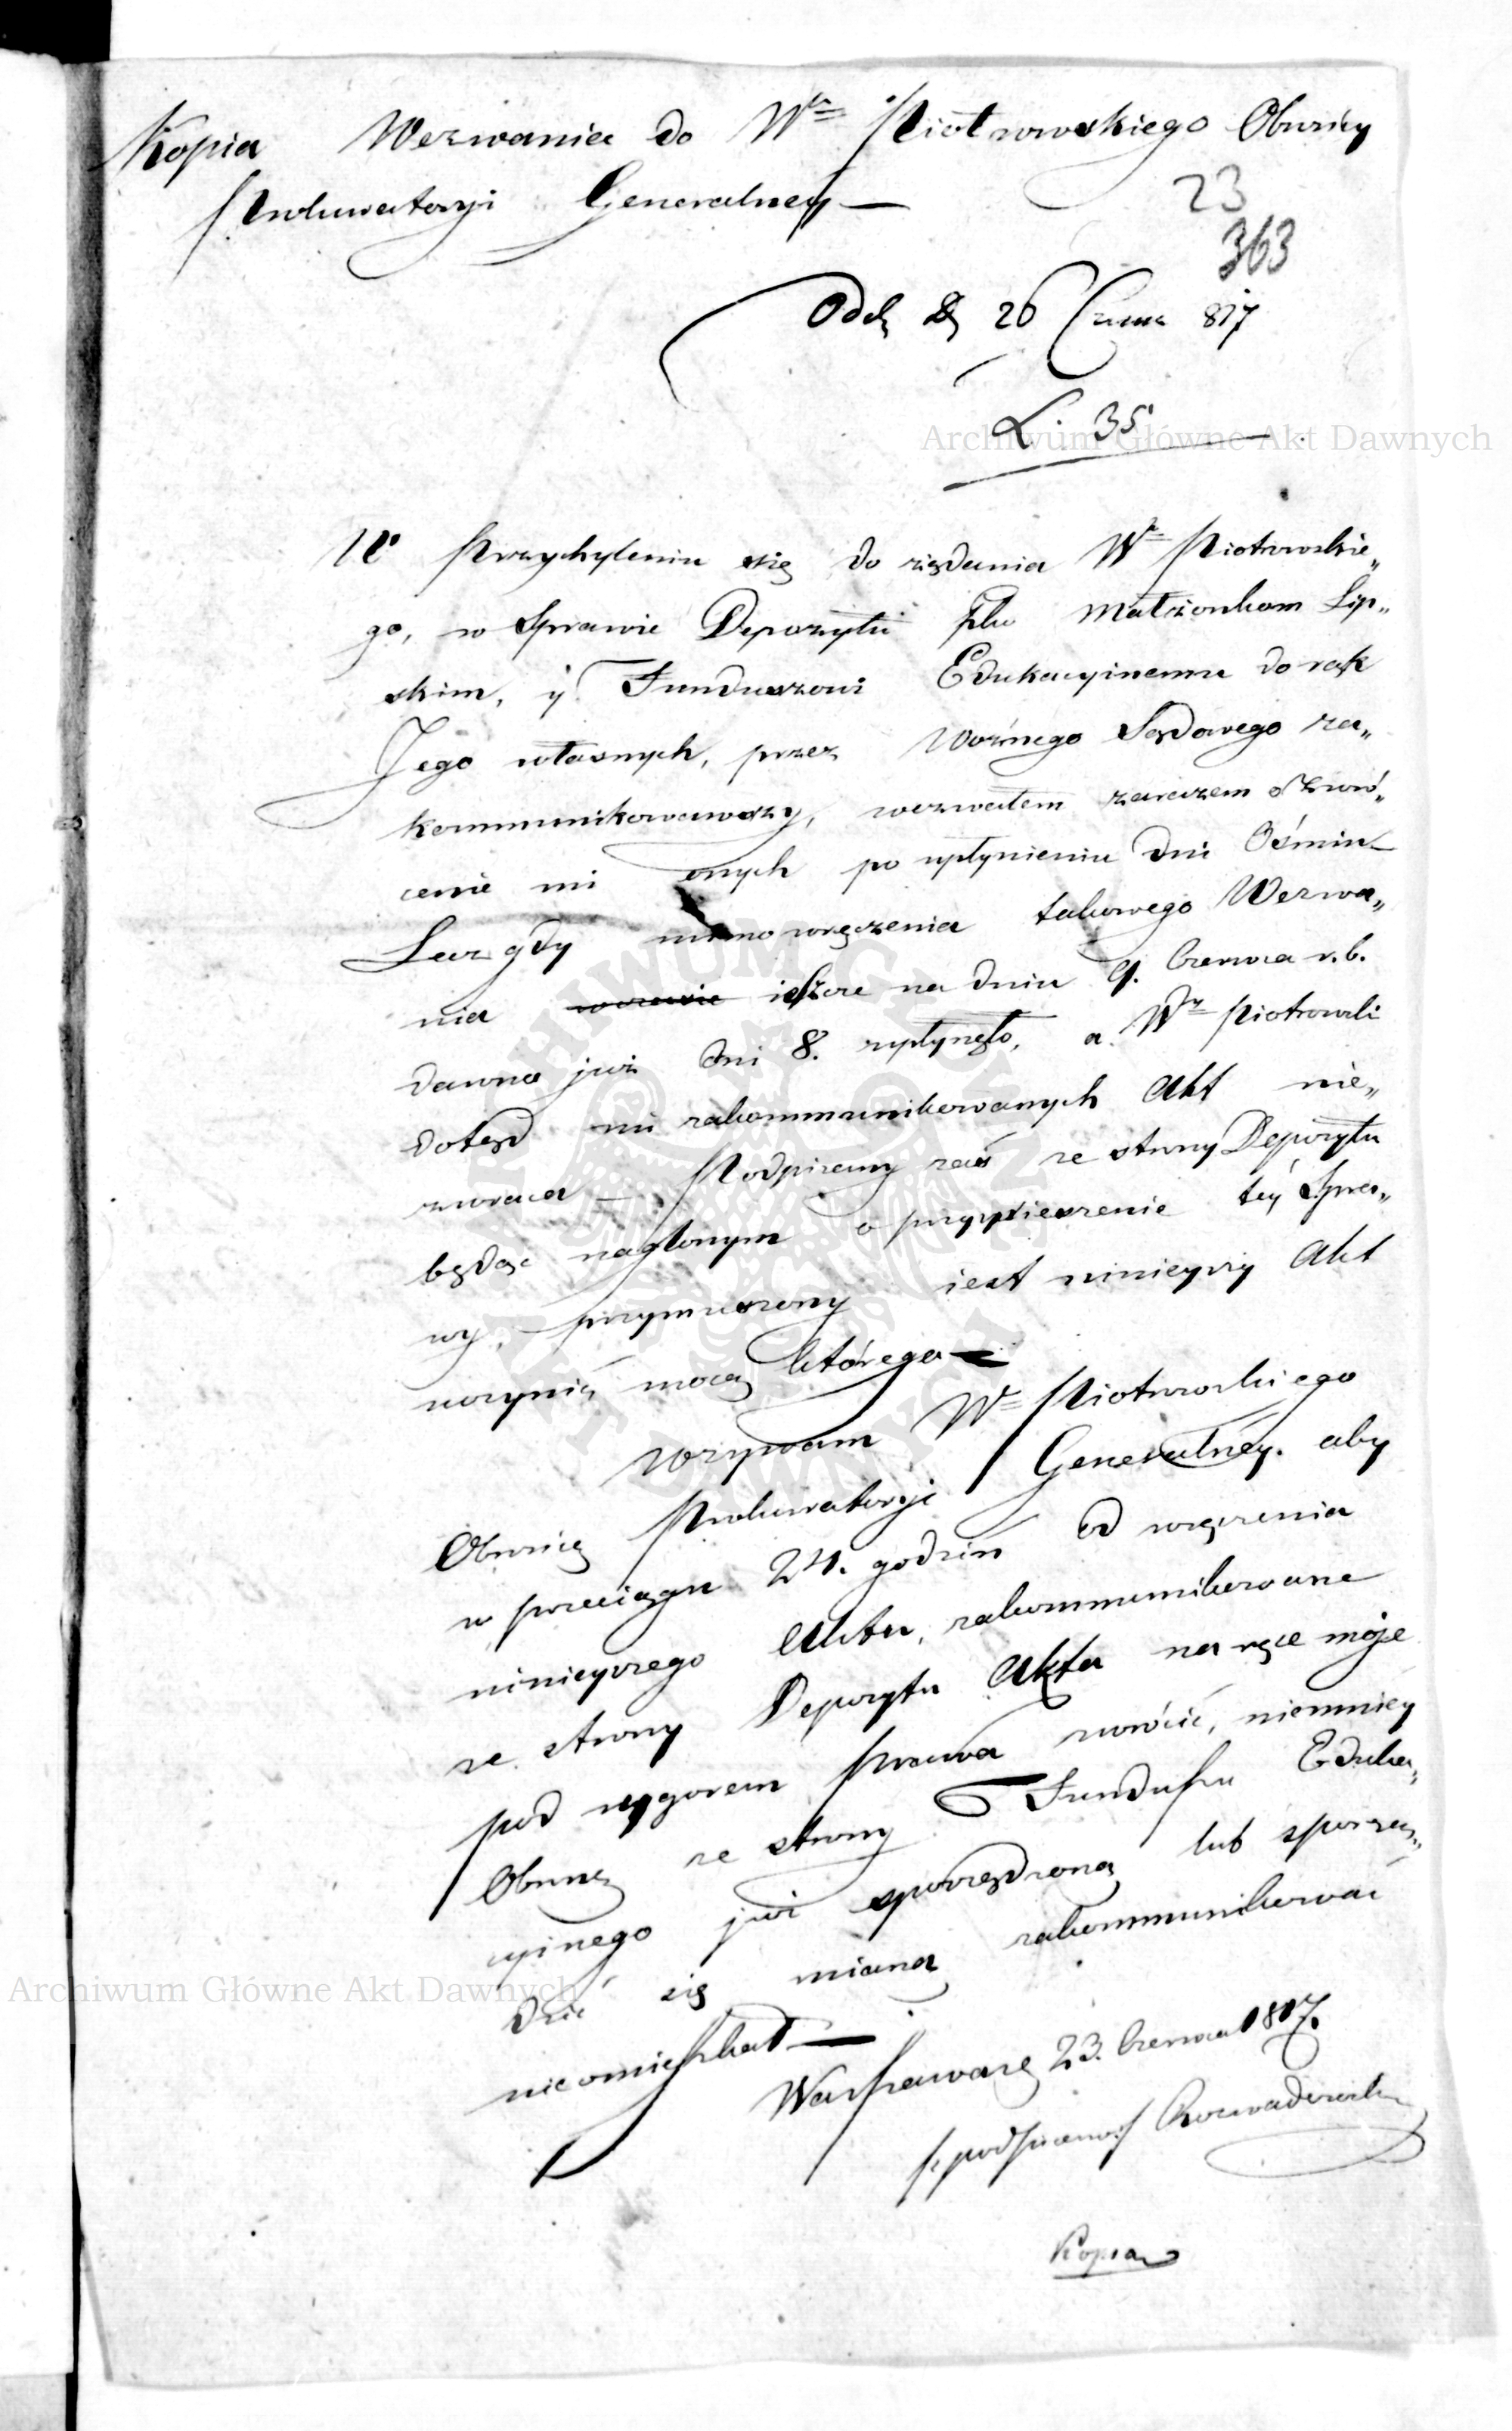 Kopia Wezwania do Wo Piotrowskiego Obrońcy
Prokuratoryi Generalney —
23
363
Odeb. D. 26 Czerw. 817
L. 35
Archiwum Główne Akt Dawnych
W Przychyleniu się do żądania Wo Piotrowskie„
go, w Sprawie Depozytu Małżonkom Lip„
skim, y Funduszowi Edukacyinemu do rąk
Jego własnych, przez Woźnego Sądowego za„
kommunikowawszy, wezwałem zarazem o zwró„
cenie mi onych po upłynieniu dni Ośmiu —
Lecz gdy mimo wręczenia takowego Wezwa„
nia ieszcze na dniu 9. Czerwca r. b.
dawno już dni 8. upłynęło, a Wy Piotrowski
dotąd mi zakommunikowanych Akt nie„
zwraca — Podpisany zaś ze strony Depozytu
będąc naglonym o przyspieszenie téy Spra„
wy, przymuszony iest ninieyszy Akt
uczynić mocą którego —
Wzywam Wo Piotrowskiego
Obrońcę Prokuratoryi Generalnéy. aby
w przeciągu 24. godzin od wręczenia
ninieyszego Aktu, zakommunikowane
ze strony Depozytu Akta na ręce moje
pod rygorem prawa zwrócić, niemniéy
Obronę ze strony Funduszu Eduka„
cyinego już sporządzoną lub sporzą„
dzić się mianą zakommunikować
nieomieszkał —
Archiwum Główne Akt Dawnych
Warszawa 23. Czerwca 1817.
podpisano Rozwadowski
Kopia
ARCHIWUM GŁÓWNE AKT DAWNYCH